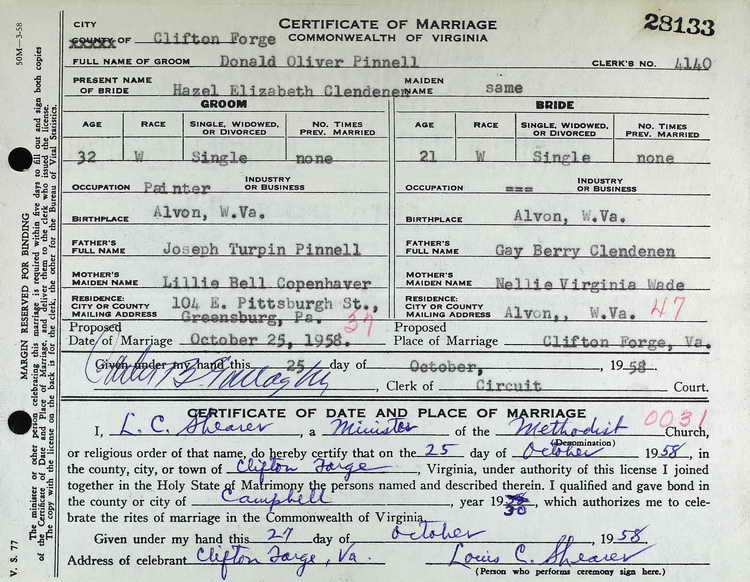 CITY
COUNTY OF Clifton Forge
CERTIFICATE OF MARRIAGE
COMMONWEALTH OF VIRGINIA
28133
FULL NAME OF GROOM Donald Oliver Pinnell CLERK'S NO. 4140
PRESENT NAME OF BRIDE Hazel Elizabeth Clendenen MAIDEN NAME same
GROOM BRIDE
AGE RACE SINGLE, WIDOWED, OR DIVORCED NO. TIMES PREV. MARRIED AGE RACE SINGLE, WIDOWED, OR DIVORCED NO. TIMES PREV. MARRIED
32 W Single none 21 W Single none
OCCUPATION Painter INDUSTRY OR BUSINESS OCCUPATION === INDUSTRY OR BUSINESS
BIRTHPLACE Alvon, W.Va. BIRTHPLACE Alvon, W.Va.
FATHER'S FULL NAME Joseph Turpin Pinnell FATHER'S FULL NAME Gay Berry Clendenen
MOTHER'S MAIDEN NAME Lillie Bell Copenhaver MOTHER'S MAIDEN NAME Nellie Virginia Wade
RESIDENCE: CITY OR COUNTY MAILING ADDRESS 104 E. Pittsburgh St., Greensburg, Pa. 37 RESIDENCE: CITY OR COUNTY MAILING ADDRESS Alvon,, W.Va. 47
Proposed Date of Marriage October 25, 1958. Proposed Place of Marriage Clifton Forge, Va.
Given under my hand this 25 day of October, 1958
, Clerk of Circuit Court.
CERTIFICATE OF DATE AND PLACE OF MARRIAGE 0031
I, L. C. Shearer, a Minister of the Methodist Church,
(Denomination)
or religious order of that name, do hereby certify that on the 25 day of October 1958, in
the county, city, or town of Clifton Forge, Virginia, under authority of this license I joined
together in the Holy State of Matrimony the persons named and described therein. I qualified and gave bond in
the county or city of Campbell, year 19 30, which authorizes me to cele-
brate the rites of marriage in the Commonwealth of Virginia.
Given under my hand this 27 day of October, 1958
Address of celebrant Clifton Forge, Va. Louis C. Shearer
(Person who performs ceremony sign here.)
50M—3-58
V. S. 77
MARGIN RESERVED FOR BINDING
The minister or other person celebrating this marriage is required within five days to fill out and sign both copies
of the Certificate of Date and Place of Marriage, and deliver them to the clerk who issued the license.
The copy with the license on the back is for the clerk, the other for the Bureau of Vital Statistics.